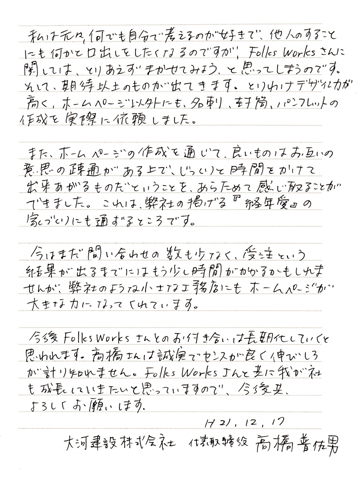 私は元々何でも自分で考えるのが好きで、他人のすること
にも何かと口出しをしたくなるのですが、Folks Worksさんに
関しては、とりあえずまかせてみよう、と思ってしまうのです。
そして、期待以上のものが出てきます。とりわけデザイン力が
高く、ホームページ以外にも、名刺、封筒、パンフレットの
作成を実際に依頼しました。
また、ホームページの作成を通じて、良いものはお互いの
意思の疎通がある上で、じっくりと時間をかけて
出来あがるものだということを、あらためて感じ取ることが
できました。これは、弊社の掲げる『経年優』の
家づくりにも通ずるところです。
今はまだ問い合わせの数も少なく、受注という
結果が出るまでにはもう少し時間がかかるかもしれま
せんが、弊社のような小さな工務店にもホームページが
大きな力になってくれています。
今後Folks Worksさんとのお付き合いは長期化していくと
思われます。高橋さんは誠実でセンスが良く伸びしろ
が計り知れません。Folks Worksさんと共に我が社
も成長していきたいと思っていますので、今後共
よろしくお願いします。
H21.12.17
大河建設株式会社 代表取締役 高橋普佐男